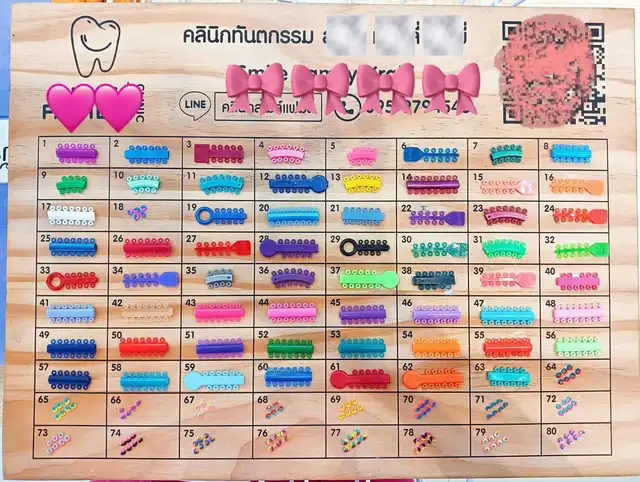 คลินิกทันตกรรม
LINE
1 2 3 4 5 6 7 8
9 10 11 12 13 14 15 16
17 18 19 20 21 22 23 24
25 26 27 28 29 30 31 32
33 34 35 36 37 38 39 40
41 42 43 44 45 46 47 48
49 50 51 52 53 54 55 56
57 58 59 60 61 62 63 64
65 66 67 68 69 70 71 72
73 74 75 76 77 78 79 80